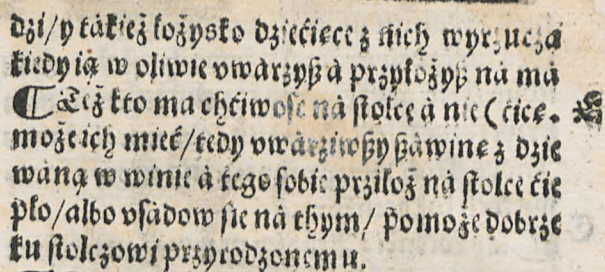 dzi/y tákież łożysko dziećięce z nich wyrzucza
kiedy ią w oliwie vwárzyß á przyłożyß ná má
¶ Też kto ma chćiwość ná stolcę á nie
może ich mieć/tedy vwárziwßy ßáwinę z dzie
wáną w winie á tego sobie prziłoż ná stolce ćie
pło/álbo vsádow sie ná thym/ pomoże dobrze
ku stolczowi przyrodzonemu.